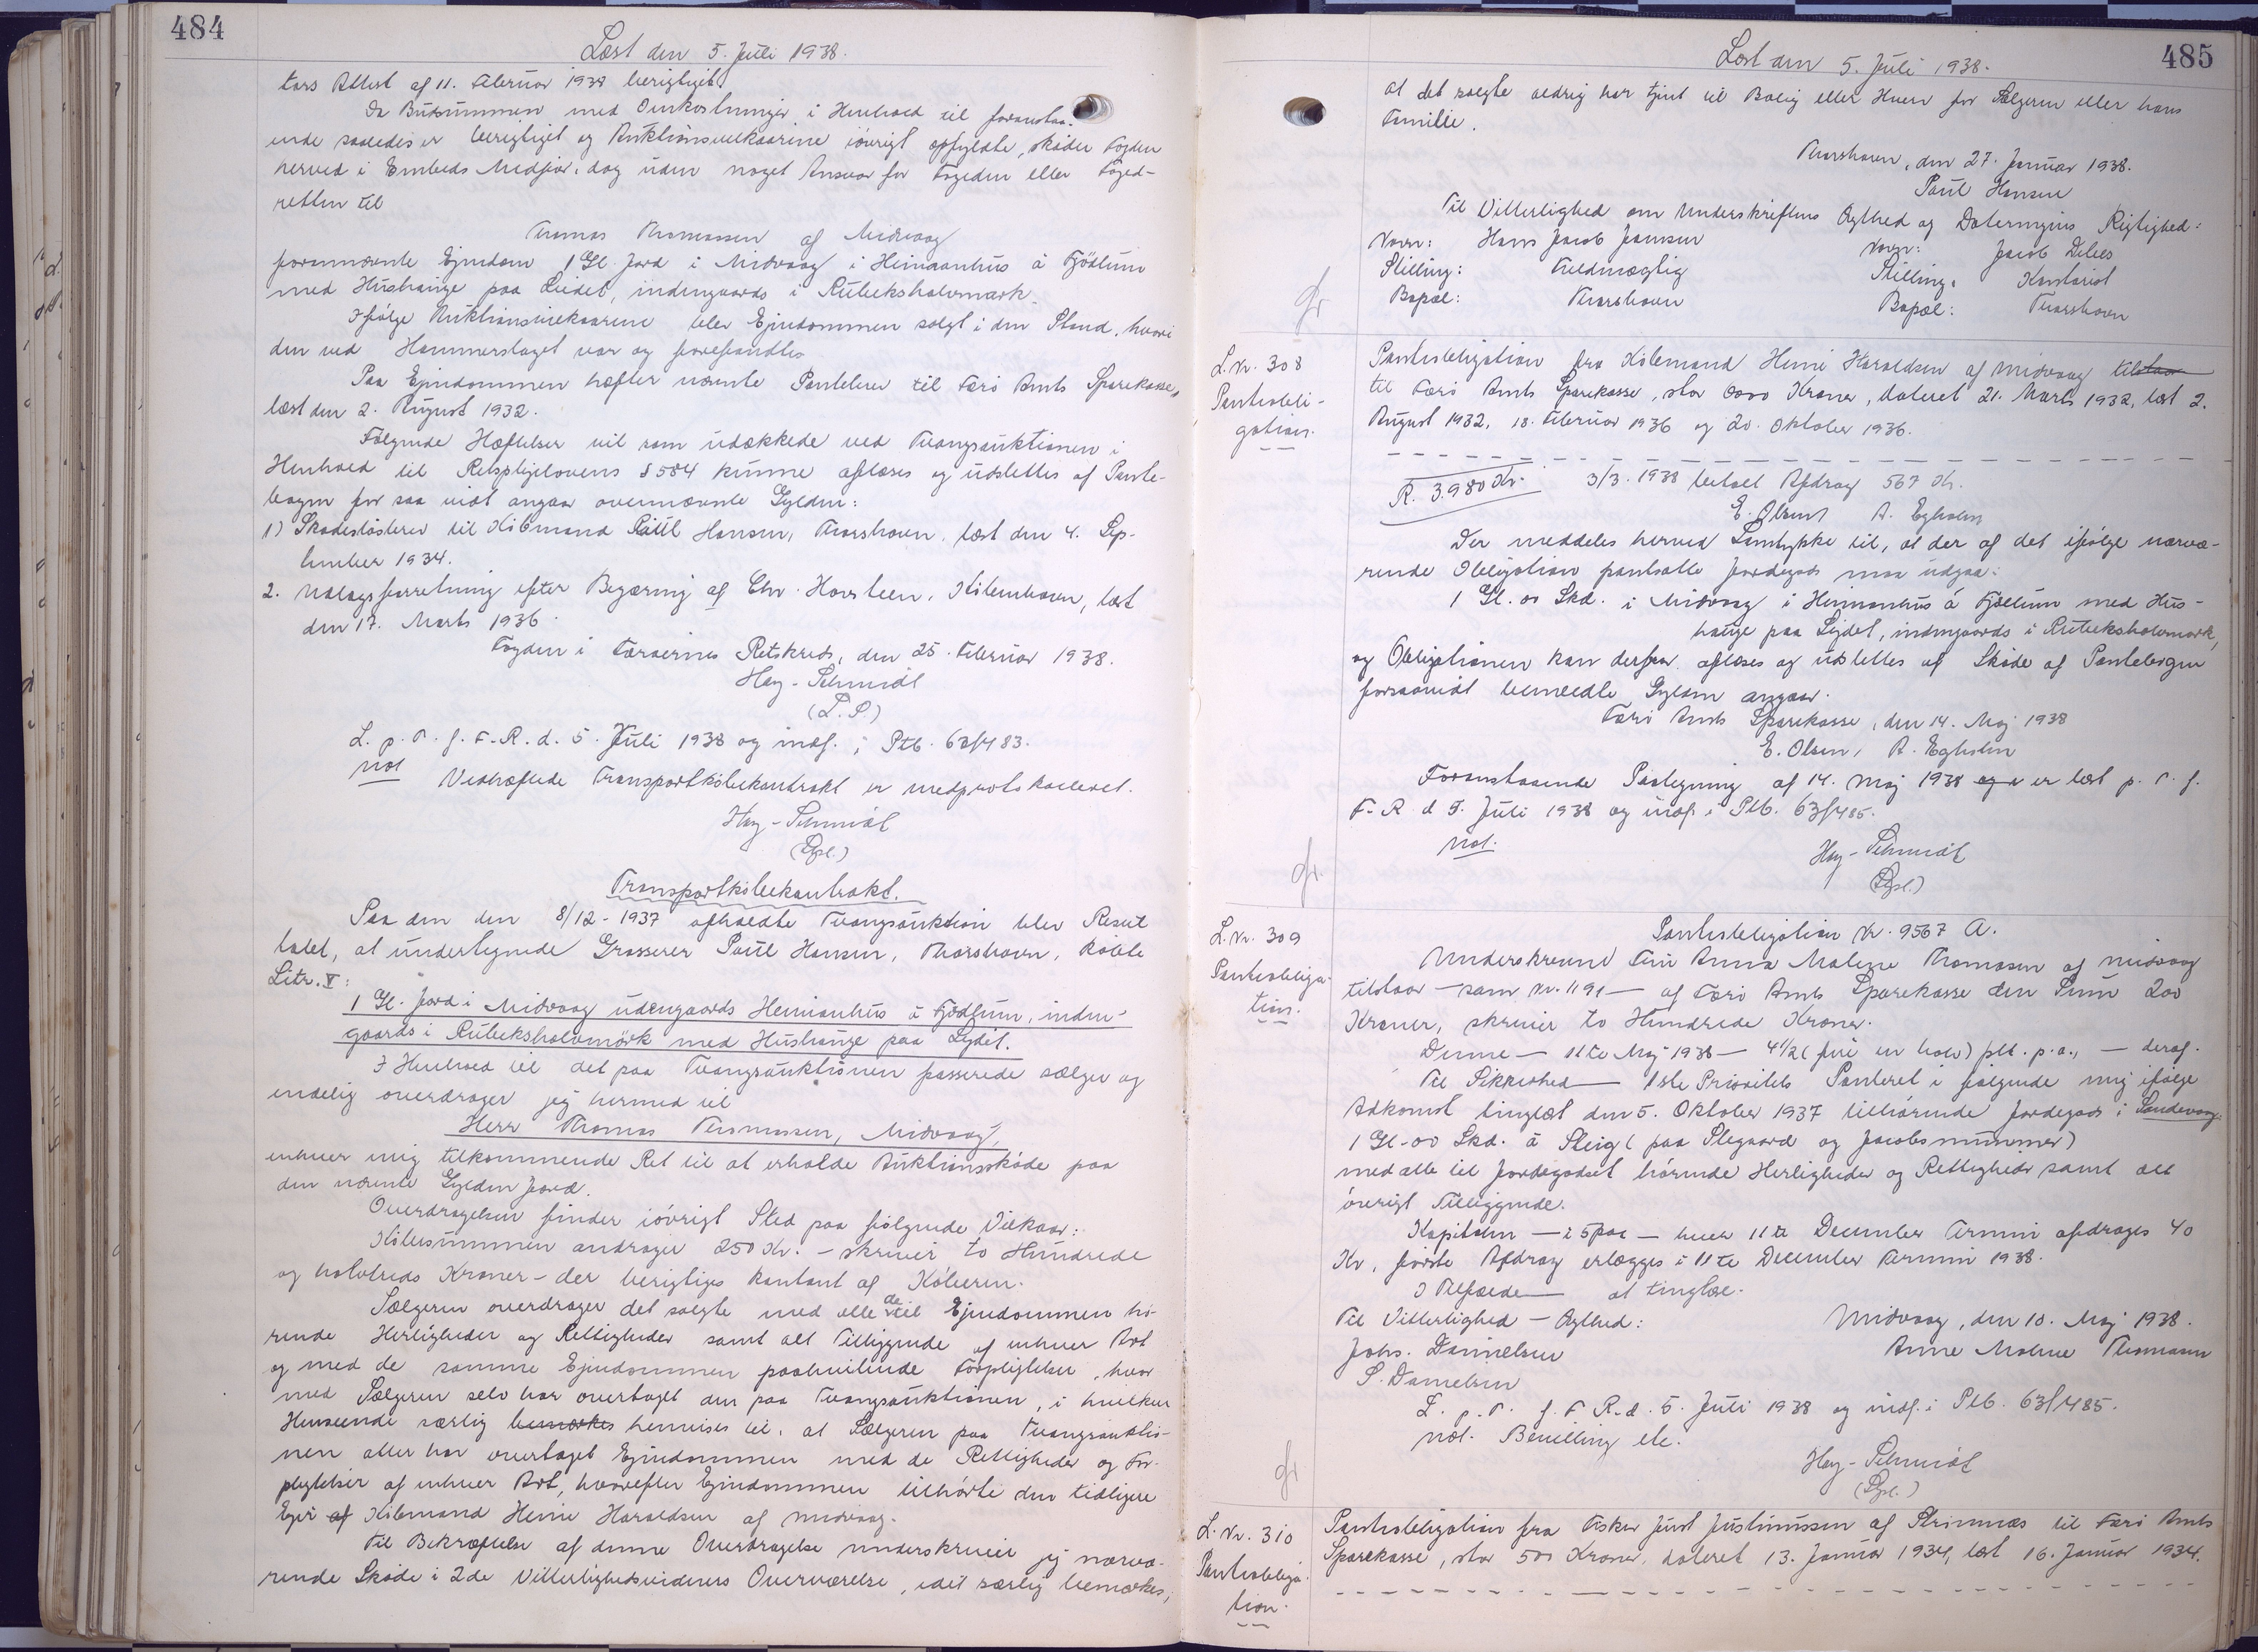 484
Læst den 5. Juli 1938.
tors Attest af 11. Februar 1938 berigtiget.
Da Budsummen med Omkostninger i Henhold til foranstaa-
ende saaledes er berigtiget og Auktionsvilkaarene iøvrigt opfyldte, skøder Fogden
herved i Embeds Medfør, dog uden noget Ansvar for Fogeden eller Foged-
retten til
Tomas Thomassen af Midvaag
forannævnte Ejendom 1 Gl. Jord i Midvaag i Heimanhus á Fjødlum
med Hushauge paa Liedet, indengaards i Rubeksholvmark.
Ifølge Auktionsvilkaarene blev Ejendommen solgt i den Stand, hvori
den ved Hammerslaget var og forefandtes
Paa Ejendommen hæfter nævnte Pantebrev til Færø Amts Sparekasse,
læst den 2. August 1932.
Følgende Hæftelser vil som udækkede ved Tvangsauktionen i
Henhold til Retsplejelovens § 584 kunne aflæses og udslettes af Pante-
bogen for saa vidt angaar ovennævnte Gylden:
1) Skadesløsbrev til Købmand Poul Hansen, Thorshavn, læst den 4. Sep-
tember 1934.
2. Udlægsforretning efter Begæring af Chr. Havsteen, København, læst
den 17. Marts 1936.
Fogden i Færøernes Retskreds, den 25. Februar 1938.
Hey-Schmidt
(L.S)
L. p. T. f. F.-R. d. 5. Juli 1938 og indf. i Ptb. 63/483.
not Vedhæftede Transportkøbekontrakt er medprotokolleret.
Hey-Schmidt
(Dpl.)
Transportkøbekontrakt.
Paa den den 8/12-1937 afholdte Tvangsauktion blev Resul
tatet, at undertegnede Grosserer Poul Hansen, Thorshavn, købte
Litr. V:
1 Gl. Jord i Midvaag udengaards Heimanhus á Fjødlum, inden-
gaards i Rubeksholvmørk med Hushauge paa Lydet.
I Henhold til det paa Tvangsauktionen passerede sælger og
endelig overdrager jeg hermed til
Herr Thomas Thomassen, Midvaag,
enhver mig tilkommende Ret til at erholde Auktionsskøde paa
den nævnte Gylden Jord.
Overdragelsen finder iøvrigt Sted paa følgende Vilkaar:
Købesummen andrager 250 Kr. - skriver to Hundrede
og halvtreds Kroner - der berigtiges kontant af Køberen.
Sælgeren overdrager det solgte med alle de til Ejendommen hø-
rende Herligheder og Rettigheder samt alt Tilliggende af enhver Art
og med de samme Ejendommen paahvilende Forpligtelser, hvor
med Sælgeren selv har overtaget den paa Tvangsauktionen, i hvilken
Henseende særlig bemærkes henvises til, at Sælgeren paa Tvangsauktio-
nen atter har overtaget Ejendommen med de Rettigheder og For-
pligtelser af enhver Art, hvorefter Ejendommen tilhørte den tidligere
Ejer af Købmand Heine Haraldsen af Midvaag.
Til Bekræftelse af denne Overdragelse underskriver jeg nærvæ-
rende Skøde i 2de Vitterlighedsvidners Overværelse, idet særlig bemærkes,
485
Læst den 5. Juli 1938.
at det solgte aldrig har tjent til Bolig eller Hjem for Sælgeren eller hans
Familie.
Thorshavn, den 27. Januar 1938.
Poul Hansen
Til Vitterlighed om Underskriftens Ægthed og Dateringens Rigtighed:
Navn: Hans Jacob Jensen Navn: Jacob
Stilling: Fuldmægtig Stilling: Kontorist
Bopæl: Thorshavn Bopæl: Thorshavn
gr
L. Nr. 308
Pantobli-
gation.
Pantobligation fra Købmand Heini Haraldsen af Midvaag tilstaar
til Færø Amts Sparekasse, stor 8000 Kroner, dateret 21. Marts 1932, læst 2.
August 1932, 18. Februar 1936 og 20. Oktober 1936.
R. 3.980 Kr. 3/3. 1938 betalt Afdrag 567 Kr.
E. Olsen A. Egholm
Der meddeles herved Samtykke til, at der af det ifølge nærvæ-
rende Obligation pantsatte Jordegods maa udgaa:
1 Gl. 00 Skd. i Midvaag i Heimanhus á Fjøllum med Hus-
hauge paa Lydet, indengaards i Rubeksholvmark,
og Obligationen kan derfor aflæses og udslettes af Skøde af Pantebogen
forsaavidt bemeldte Gylden angaar.
Færø Amts Sparekasse, den 14. Maj 1938
E. Olsen, A. Egholm
Foranstaaende Paategning af 14. Maj 1938 og er læst p. T. f.
F.-R. d. 5. Juli 1938 og indf. i Ptb. 63/485.
not.
Hey-Schmidt
(Dpl.)
gr.
L. Nr. 309
Pantobliga-
tion.
Pantobligation Nr. 9567 A.
Underskrevne Fru Anna Malene Thomasen af Midvaag
tilstaar - som Nr. 1191 - af Færø Amts Sparekasse den Sum 200
Kroner, skriver to Hundrede Kroner.
Denne - 11te Maj 1938 - 4 1/2 (fire en halv) pCt. p.a., - deraf.
Til Sikkerhed - 1ste Prioritets Panteret i følgende mig ifølge
Adkomst tinglæst den 5. Oktober 1937 tilhørende Jordegods i Sandevaag:
1 Gl.-00 Skd. á Steig (paa Slegaard og Jacobs nummer)
med alle til Jordegodset hørende Herligheder og Rettigheder samt alt
øvrigt Tilliggende.
Kapitalen - 25paa - hver 11te December Termin afdrages 40
Kr, første Afdrag erlægges i 11te December Termin 1938.
I Tilfælde - at tinglæse.
Til Vitterlighed - Ægthed: Midvaag, den 10. Maj 1938.
Johs. Danielsen Anne Malene Thomasen
S. Danielsen
L. p. T. f. F. R. d. 5. Juli 1938 og indf. i Ptb. 63/485.
not. Bevilling etc.
Hey-Schmidt
(Dpl.)
gr
L. Nr. 310
Pantobliga-
tion.
Pantobligation fra Fisker Just Justinussen af Strimnæs til Færø Amts
Sparekasse, stor 500 Kroner, dateret 13. Januar 1934, læst 16. Januar 1934.